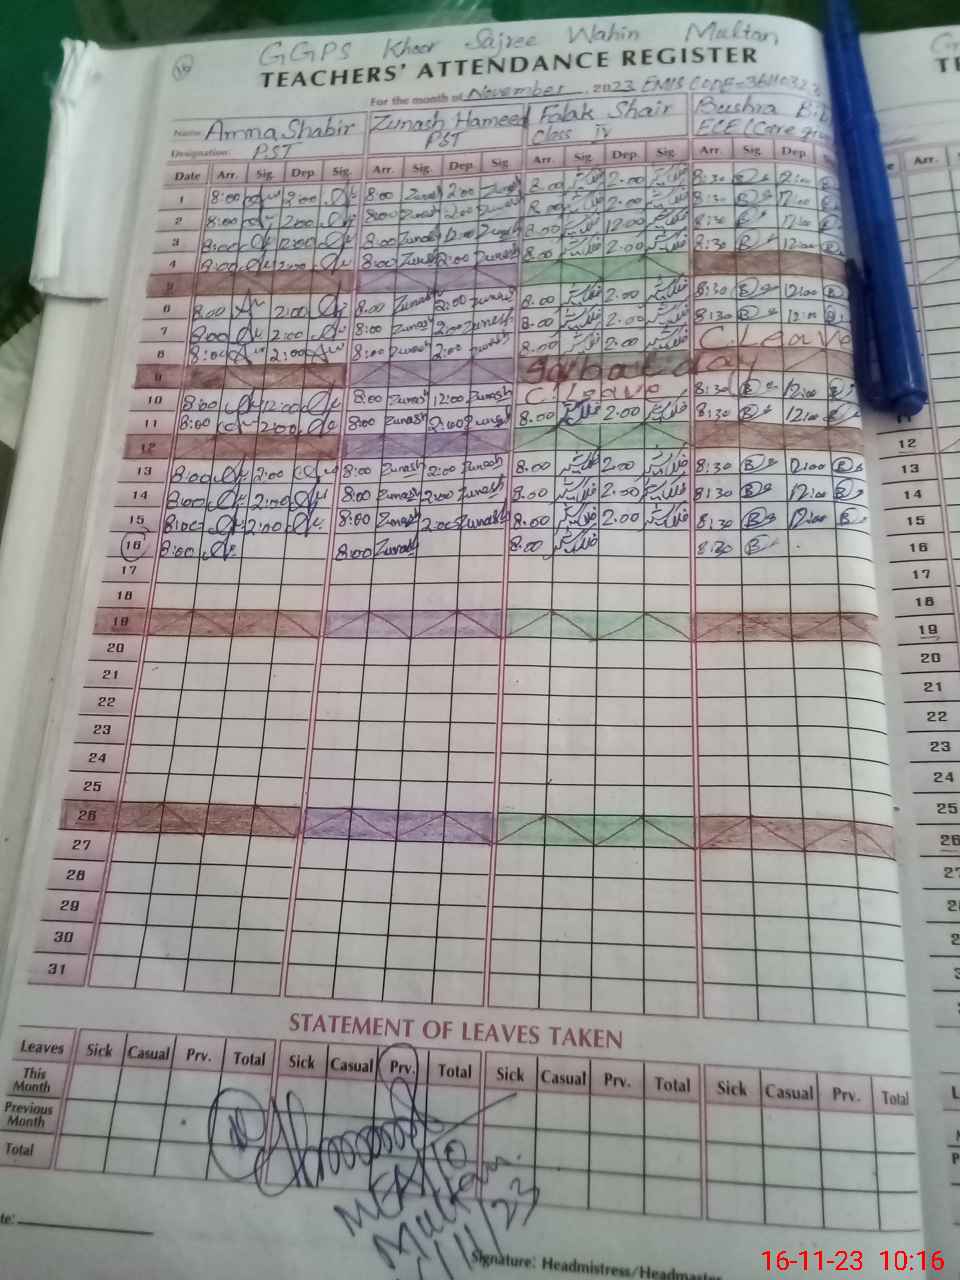 GGPS Khoor Sajree Wahin Multan
TEACHERS' ATTENDANCE REGISTER
For the month of November, 2023 EMIS CODE-3611032
Name Amna Shabir Zunash Hameed Falak Shair Bushra Bibi
Designation: PST PST Class IV ECE (Care
Date Arr. Sig. Dep. Sig. Arr. Sig. Dep. Sig. Arr. Sig. Dep. Sig. Arr. Sig. Dep. Arr.
1 8:00 2:00 8:00 Zunash 2:00 Zunash 8.00 فلک شیر 2.00 فلک شیر 8:30 B 12:00 B
2 8:00 2:00 8:00 Zunash 2:00 Zunash 8.00 فلک شیر 2.00 فلک شیر 8:30 B 12:00 B
3 8:00 12:00 8:00 Zunash 12:00 Zunash 8.00 فلک شیر 12.00 فلک شیر 8:30 B 12:00 B
4 8:00 2:00 8:00 Zunash 2:00 Zunash 8.00 فلک شیر 2.00 فلک شیر 8:30 B 12:00 B
5
6 8:00 2:00 8:00 Zunash 2:00 Zunash 8.00 فلک شیر 2.00 فلک شیر 8:30 B 12:00 B
7 8:00 2:00 8:00 Zunash 2:00 Zunash 8.00 فلک شیر 2.00 فلک شیر 8:30 B 12:00 B
8 8:00 2:00 8:00 Zunash 2:00 Zunash 8.00 فلک شیر 2.00 فلک شیر C.Leave
9 Iqbal day
10 8:00 12:00 8:00 Zunash 12:00 Zunash C.Leave 8:30 B 12:00 B
11 8:00 2:00 8:00 Zunash 2:00 Zunash 8.00 فلک شیر 2.00 فلک شیر 8:30 B 12:00 B 11
12 12
13 8:00 2:00 8:00 Zunash 2:00 Zunash 8.00 فلک شیر 2.00 فلک شیر 8:30 B 12:00 B 13
14 8:00 2:00 8:00 Zunash 2:00 Zunash 8.00 فلک شیر 2.00 فلک شیر 8:30 B 12:00 B 14
15 8:00 2:00 8:00 Zunash 2:00 Zunash 8.00 فلک شیر 2.00 فلک شیر 8:30 B 12:00 B 15
16 8:00 8:00 Zunash 8:00 فلک شیر 8:30 B 16
17 17
18 18
19 19
20 20
21 21
22 22
23 23
24 24
25 25
26 26
27
28
29
30
31
STATEMENT OF LEAVES TAKEN
Leaves Sick Casual Prv. Total Sick Casual Prv. Total Sick Casual Prv. Total Sick Casual Prv. Total
This Month
Previous Month
Total
Multan
Signature: Headmistress/Headmaster
16-11-23 10:16